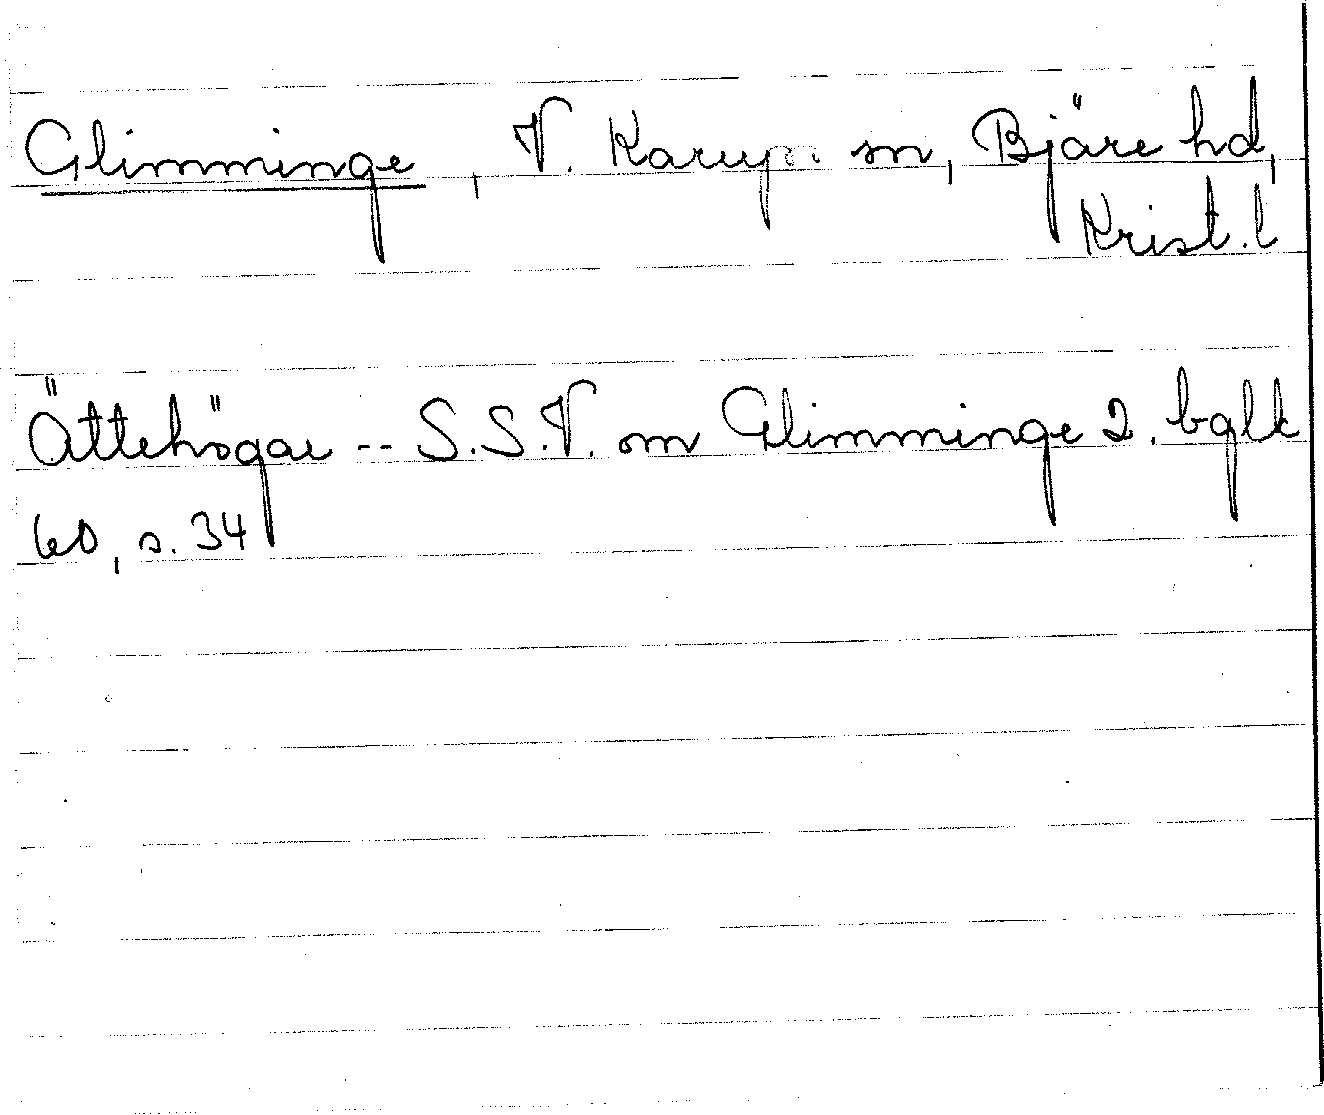 Glimminge, V. Karup sn, Bjäre hd,
Krist. l
Ättehögar -- S.S.V. om Glimminge 2. bglk
60, s. 34